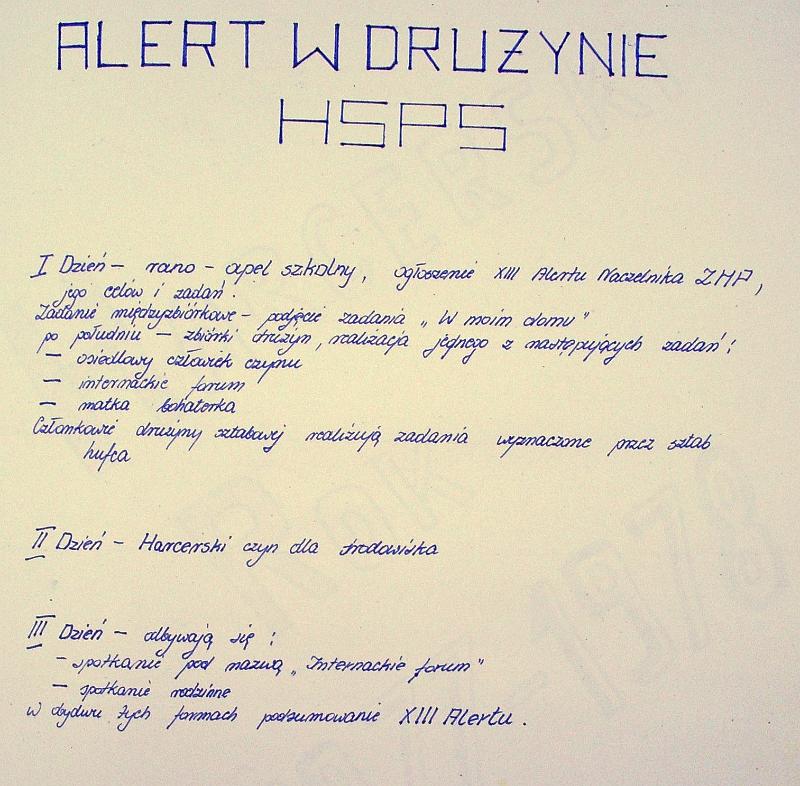 ALERT W DRUŻYNIE
HSPS
I Dzień – rano – apel szkolny, ogłoszenie XIII Alertu Naczelnika ZHP,
jego celów i zadań.
Zadanie międzyzbiórkowe – podjęcie zadania „W moim domu"
po południu – zbiórki drużyn, realizacja jednego z następujących zadań:
– osiedlowy człowiek czynu
– internackie forum
– matka bohaterka
Członkowie drużyny sztabowej realizują zadania wyznaczone przez sztab
hufca
II Dzień – Harcerski czyn dla środowiska
III Dzień – odbywają się:
– spotkanie pod nazwą „Internackie forum"
– spotkanie rodzinne
w obydwu tych formach podsumowanie XIII Alertu.